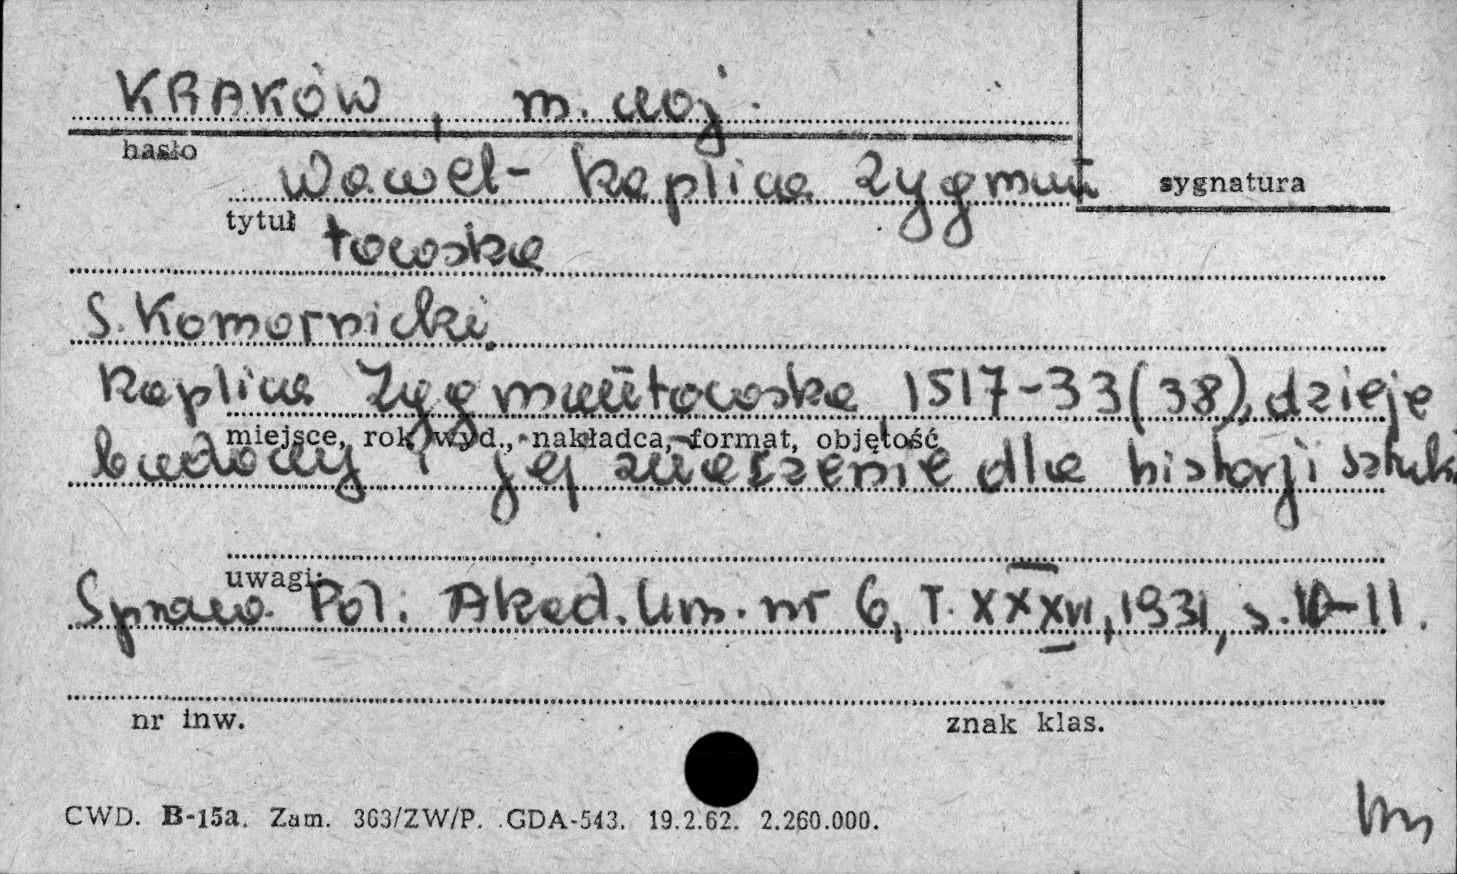 KRAKÓW, m. woj.
hasło
Wawel - Kaplica Zygmun
sygnatura
tytuł
towska
S. Komornicki,
Kaplica Zygmuntowska 1517-33(38), dzieje
miejsce, rok wyd., nakładca, format, objętość
budowy i jej znaczenie dla historji sztuki
uwagi:
Spraw. Pol. Akad. Um. nr 6, T. XXXVI, 1931, s. 10-11.
nr inw.
znak klas.
CWD. B-15a. Zam. 363/ZW/P. GDA-543. 19.2.62. 2.260.000.